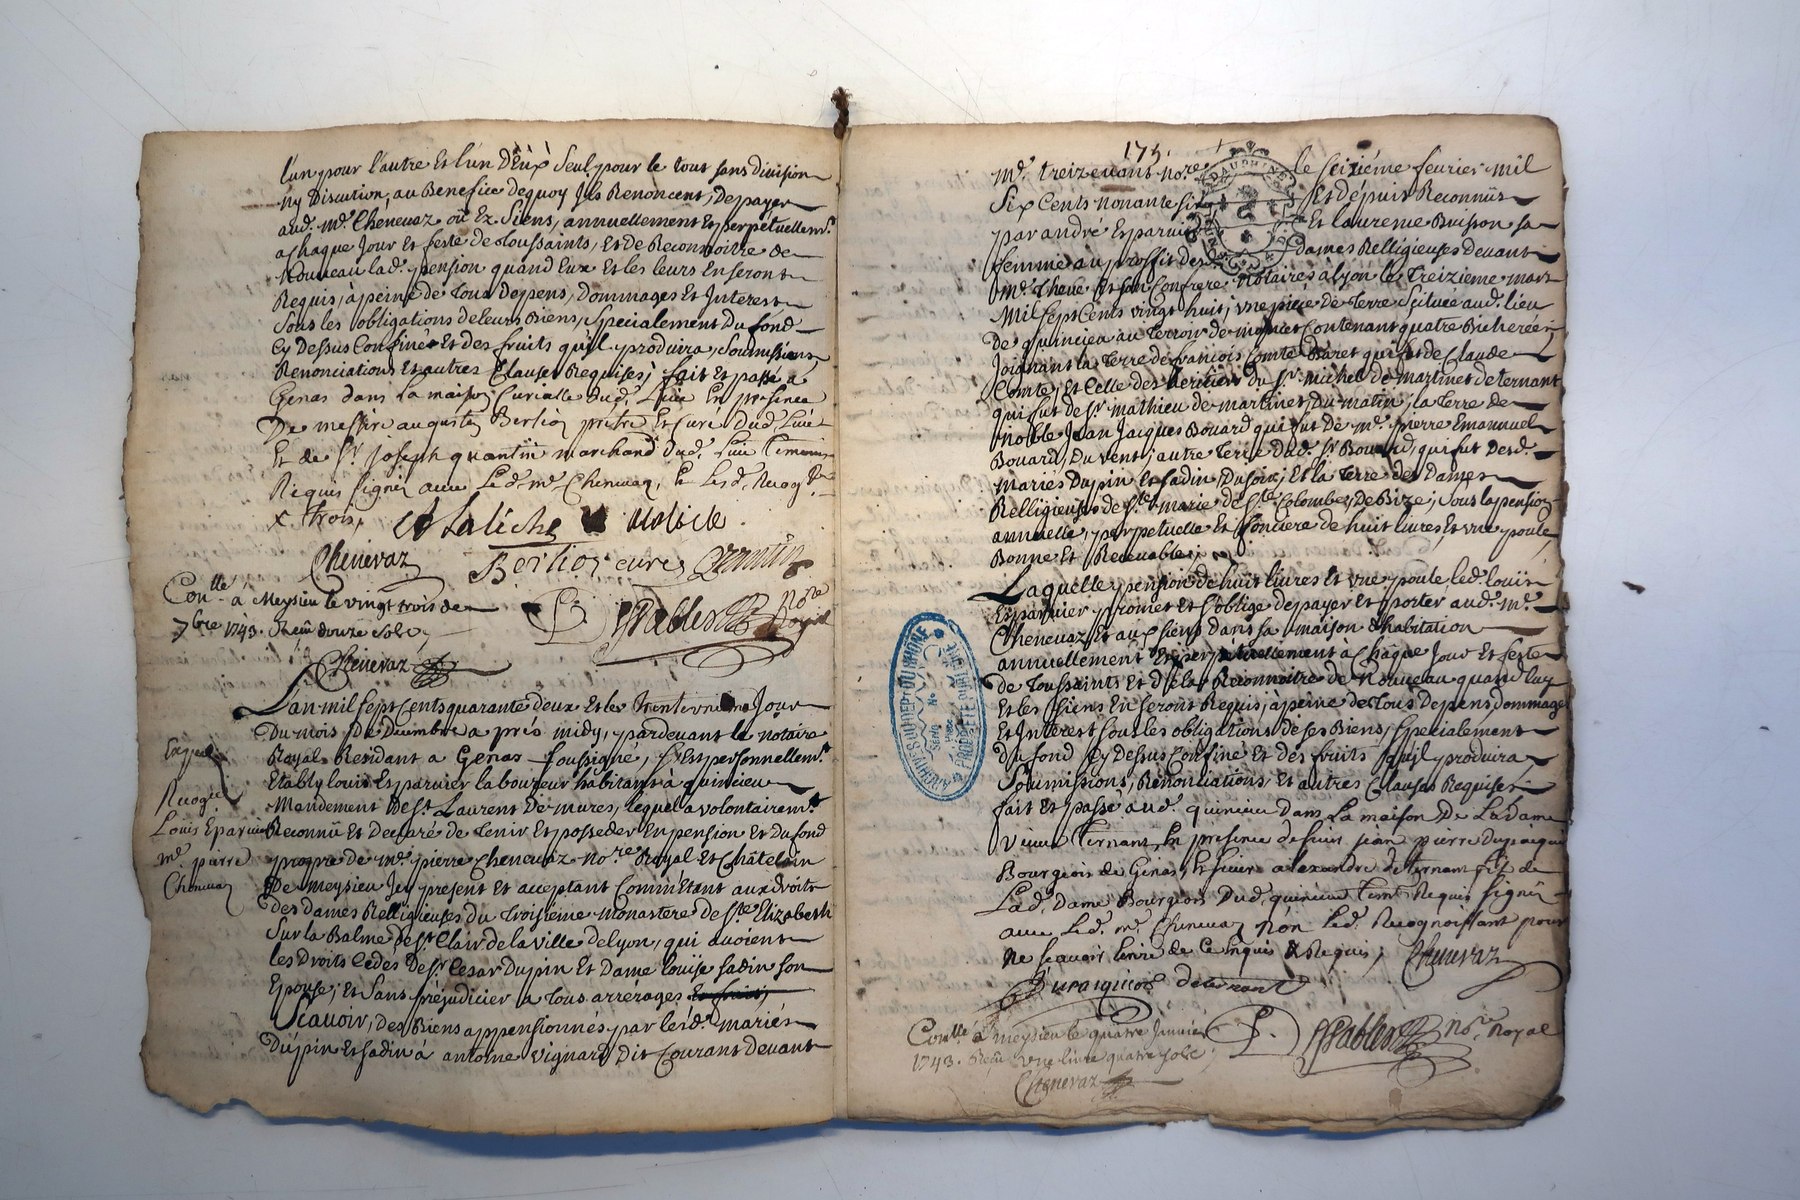 l'un pour l'autre Et l'un D'Eux Seul pour le tout sans division
ny Discution, au Benefice dequoy Jls Renoncent, De payer
aud. Me. Chenevaz oü Ez Siens, annuellement Et perpetuellemt.
a chaque Jour Et feste de toussaints, Et de Reconnoitre de
Nouveau lad. pension quand Eux Et les leurs En seront
Requis, à peine de tous depens, Dommages Et Interest
Sous les obligations de leurs Biens, Specialement Du fond
Cy Dessus Confiné Et des fruits qu'il produira, Soumissions
Renonciations Et autres Clauses Requises; fait Et passé à
Genas dans La maison Curialle dud. Lieu En presence
De messire augustin Bertioz prêtre Et Curé dud. Lieu
Et de Sr. joseph quantin marchand dud. Lieu
Requis signés avec Led. me. Chenevaz, Les d.
x trois,
Chenevaz Bertioz curé
Conlle. à Meysieu le vingt trois de
7bre 1743. Reçu douze sols,
PPables Nore. Royal
Chenevaz
L'an mil sept Cents quarante deux Et le Jour
Du mois De Decembre a prés midy, pardevant le notaire
Royal Residant a Genas soussigné, s'Est personnellemt.
Etably louis Eparvier laboureur habitant à quincieu
Mandement De St. Laurent De mures, lequel a volontairemt.
Reconnü Et Declaré de tenir Et posseder En pension Et du fond
propre de Me. pierre Chenevaz nore. Royal Et Châtelain
De meysieu Jcy present Et acceptant Comm'Etant aux droits
des Dames Relligieuses Du troisieme monastere de Ste. Elizabeth
Sur la Balme de St. Clair de la ville de lyon, qui avoient
les Droits Cedés de Sr. Cesar Dupin Et Dame louïse fadin son
Epouse; Et Sans préjudicier a tous arrérages
Scavoir, des Biens appensionnés par lesd. mariés
Dupin Et fadin à antoine vignard Dit Courant Devant
Louis Eparvier
me. pierre
Chenevaz
175.
DAUPHINE
Me. treizevant nore. le seizième fevrier mil
Six Cents nonante six, Et depuis Reconnüs
par andré Eparvier Et laurence Buisson sa
femme au proffit des Dames Relligieuses devant
Me. Thevé Et son Confrere Notaires a lyon le Treizieme mars
Mil sept Cents vingt huit; vne piéce de Terre Scituée aud. lieu
De quincieu au Terroir de Contenant quatre Bicherées
Joignant la Terre de francois Comte Baret qui fut de Claude
Comte; Et Celle des heritiers du Sr. michel de martinet de ternant
qui fut de Sr. mathieu de martinet, Du matin; la Terre de
Noble Jean Jacques Bouard qui fut De Me. pierre Emanuel
Bouard, Du vent; autre Terre Dud. Sr. Bouard, qui fut desd.
Mariés Dupin Et fadin, Du soir; Et la Terre des Dames
Relligieuses de Ste. marie de Ste. Colombe, De Bize; Sous la pension
annuelle, perpetuelle Et fonciere de huit livres, Et vne poule
Bonne Et Recevable;
Laquelle pension de huit livres Et vne poule led. louïs
Eparvier promet Et s'oblige de payer Et porter aud. Me.
Chenevaz Et aux siens dans sa maison d'habitation
annuellement Et perpétuellement a Chaque Jour Et feste
de Toussaints Et de la Reconnoitre de Nouveau quand luy
Et les siens En seront Requis, à peine de tous depens, dommages
Et Interest sous les obligations de ses Biens, Specialement
du fond Cy dessus Confiné Et des fruits qu'il produira
Soumissions, Renonciations Et autres Clauses Requises
fait Et passé aud. quincieu dans La maison De La Dame
Veuve Ternant, En presence de sieur jean pierre
Bourgeois de Genas, Et sieur alexandre de ternant fils de
Lad. Dame Bourgeois Dud. quincieu Requis signés
avec Led. me. Chenevaz non led. Recognoissant pour
ne scavoir Ecrire de Ce Enquis & Requis; Chenevaz
deternant
Conlle. à meysieu le quatre Janvier
1743. Reçu vne livre quatre sols;
Chenevaz
PPables Nore. Royal
ARCHIVES DU DEPT DU RHONE
PROPRIETE PUBLIQUE